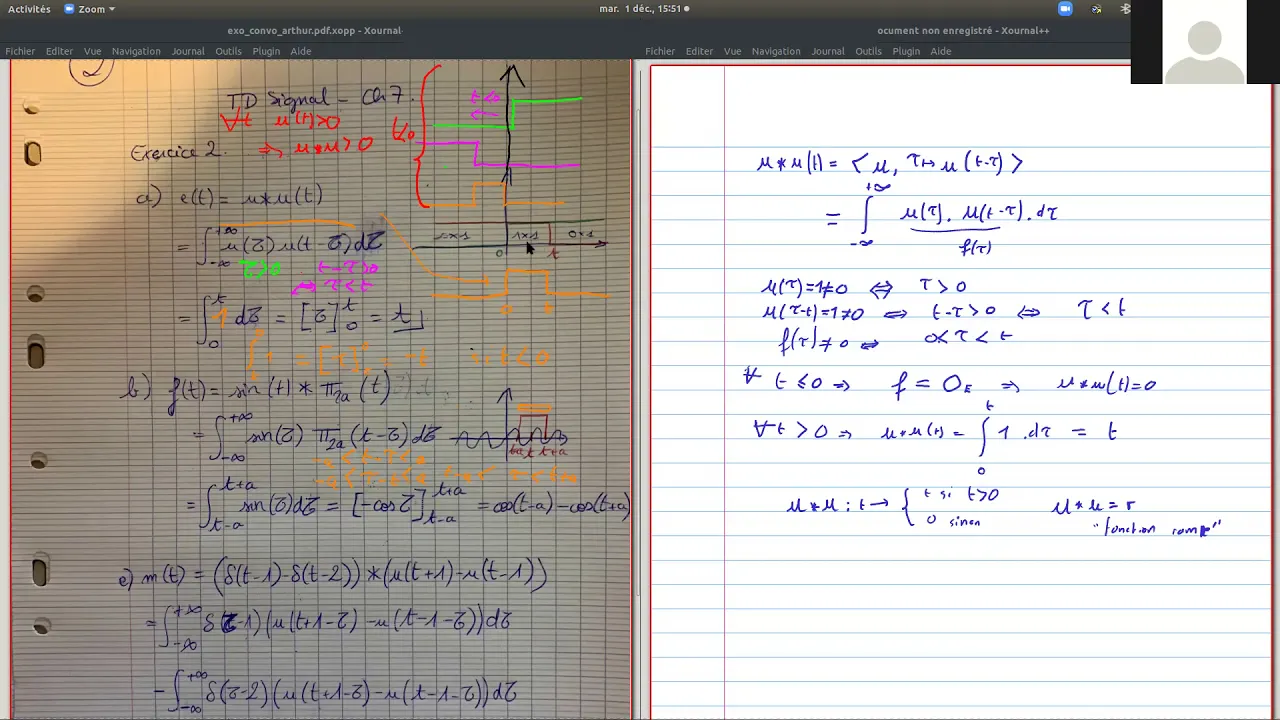 Activités Zoom mar. 1 déc., 15:51
exo_convo_arthur.pdf.xopp - Xournal
Fichier Editer Vue Navigation Journal Outils Plugin Aide
2
TD Signal - Ch 7.
∀t u(t)>0
Exercice 2. => u*u>0
t<0
a) e(t) = u*u(t)
= ∫_{-∞}^{+∞} u(τ) u(t-τ)dτ
τ>0 t-τ>0
↔ τ<t
1x1 0x1
0 t
= ∫_0^t 1 dτ = [τ]_0^t = t
= -t si t<0
b) f(t) = sin(t) * π_{2a}(t)
= ∫_{-∞}^{+∞} sin(τ) π_{2a}(t-τ)dτ
= ∫_{t-a}^{t+a} sin(τ)dτ = [-cos τ]_{t-a}^{t+a} = cos(t-a) - cos(t+a)
e) m(t) = (δ(t-1)-δ(t-2)) * (u(t+1)-u(t-1))
= ∫_{-∞}^{+∞} δ(τ-1)(u(t+1-τ) -u(t-1-τ))dτ
- ∫_{-∞}^{+∞} δ(τ-2)(u(t+1-τ) -u(t-1-τ))dτ
ocument non enregistré - Xournal++
Fichier Editer Vue Navigation Journal Outils Plugin Aide
u*u(t) = < u, τ↦ u(t-τ) >
= ∫_{-∞}^{+∞} u(τ). u(t-τ).dτ
f(τ)
u(τ)=1≠0 ⇔ τ>0
u(τ-t)=1≠0 ⇔ t-τ>0 ⇔ τ<t
f(τ)≠0 ⇔ 0<τ<t
∀ t≤0 => f = 0_E => u*u(t)=0
∀t>0 => u*u(t) = ∫_0^t 1.dτ = t
u*u : t → { t si t>0
0 sinon
u*u = r
"fonction rampe"